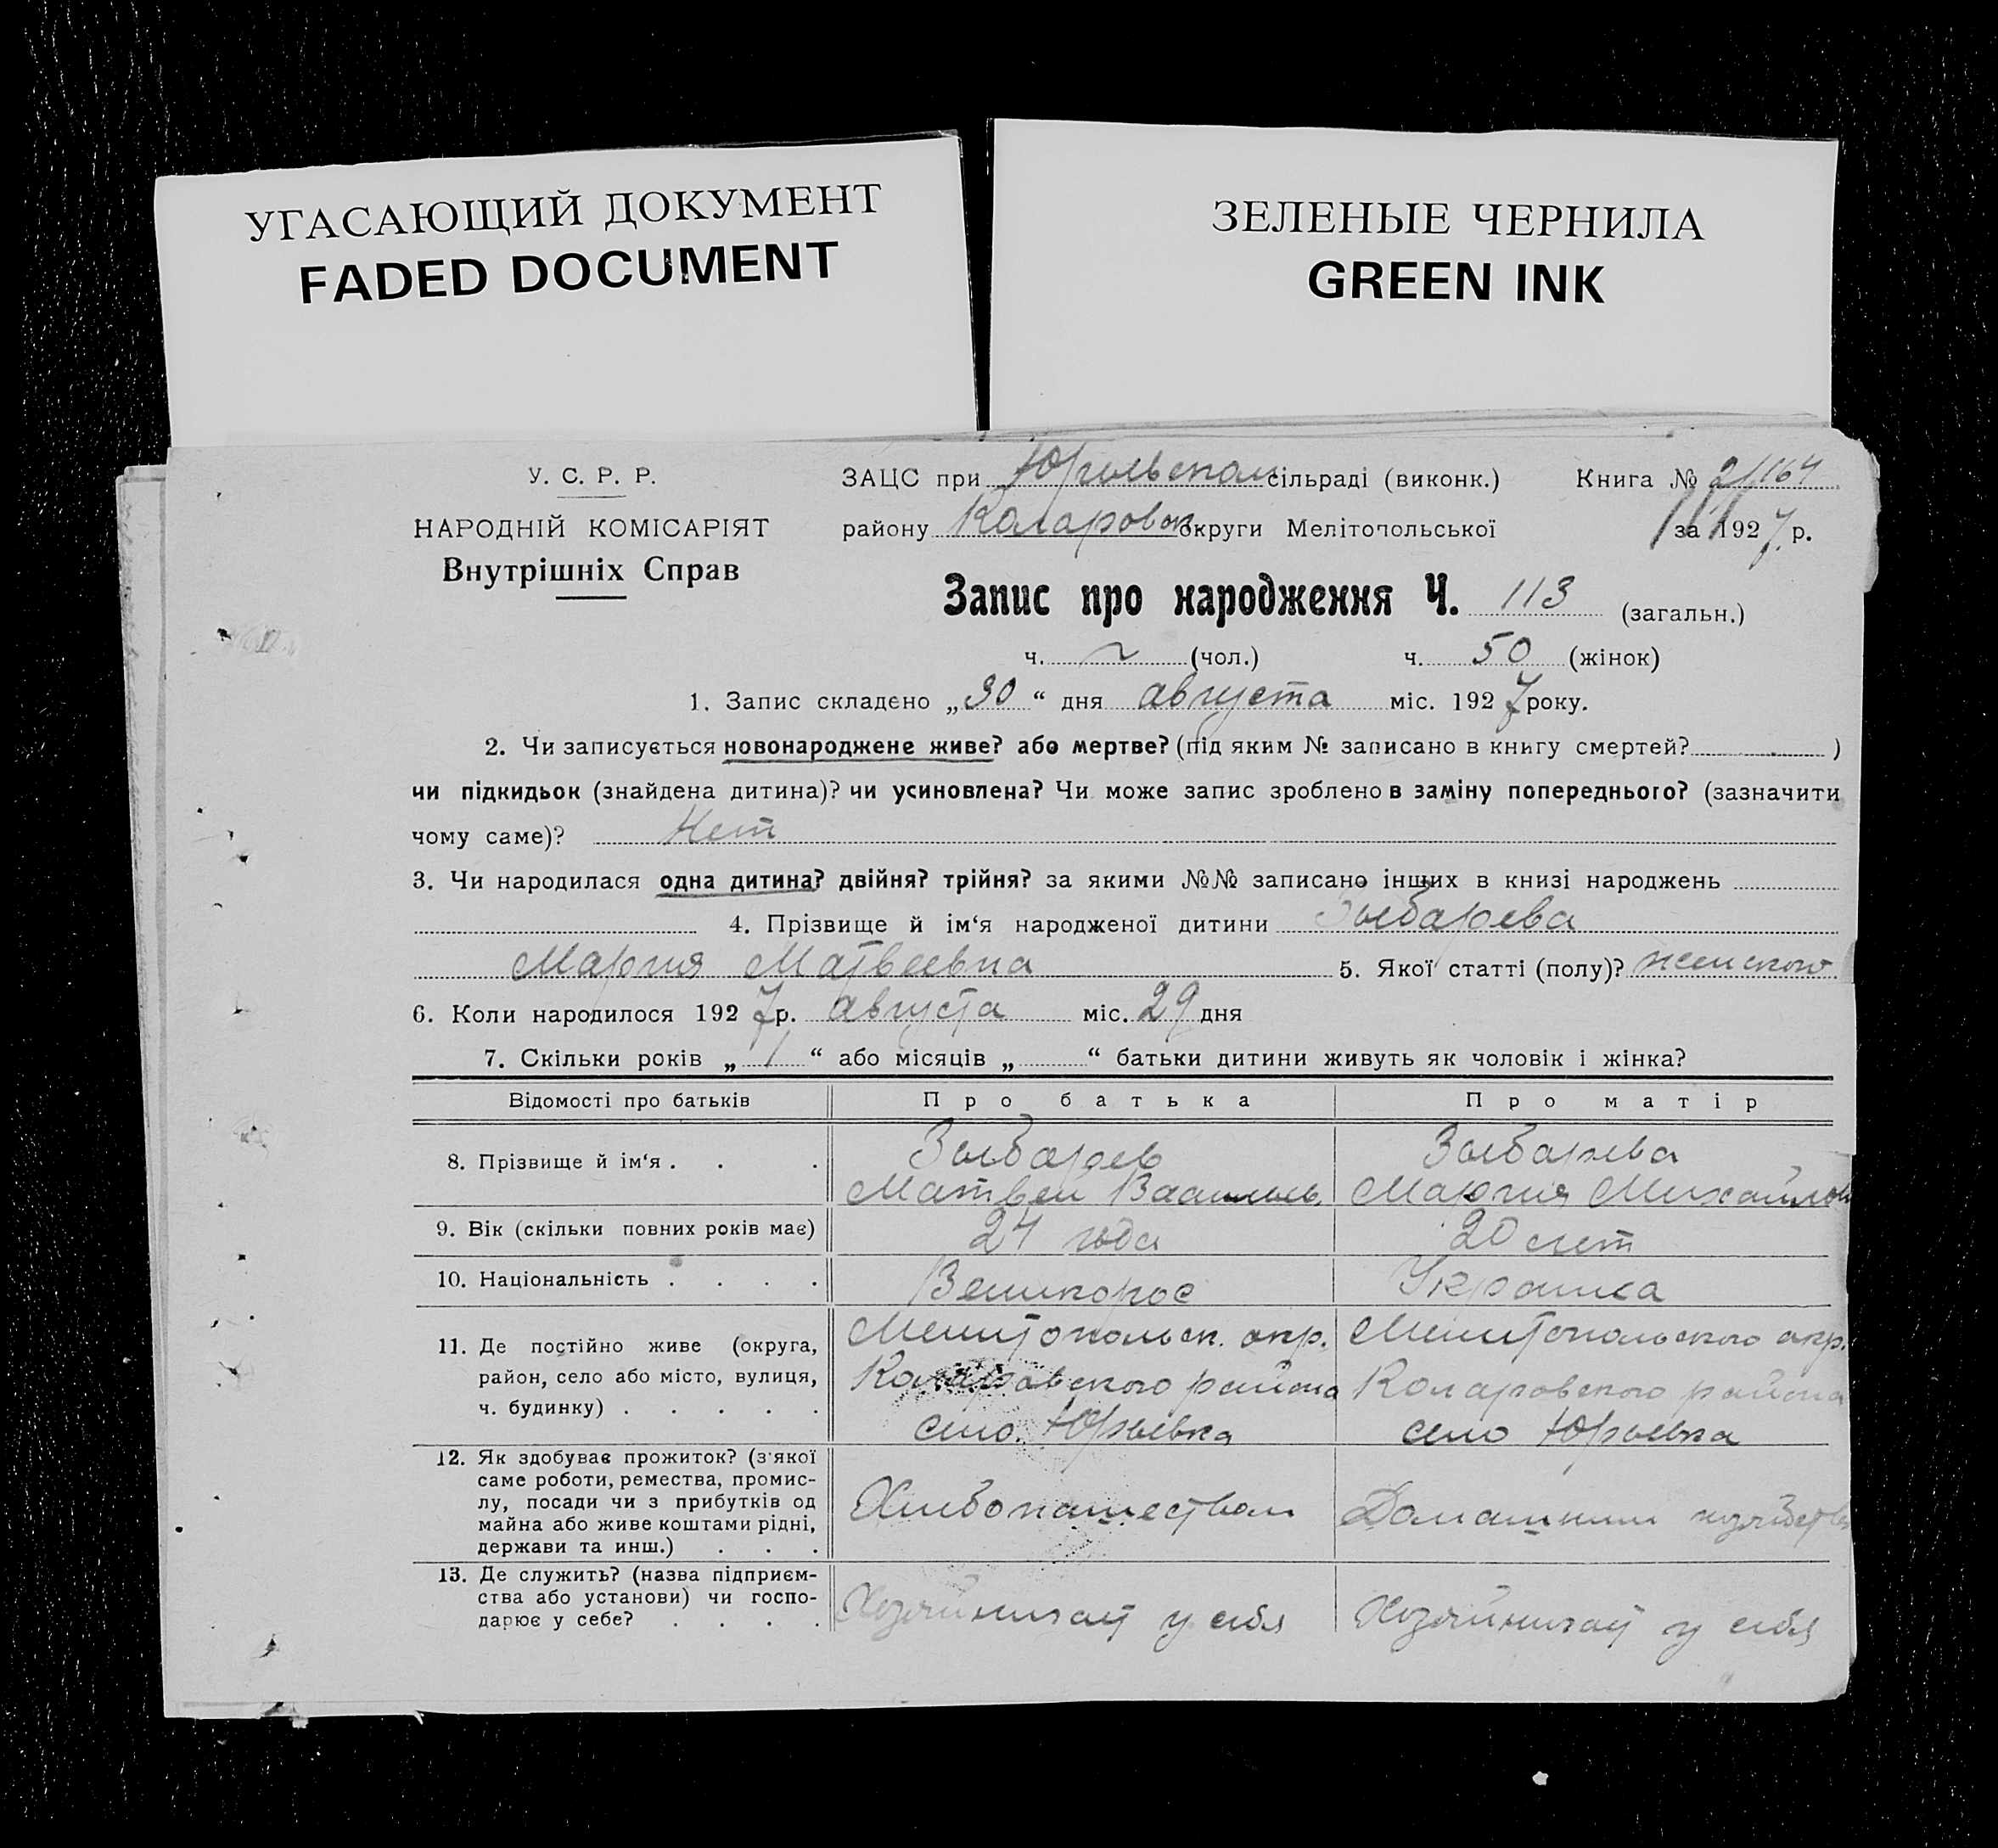 УГАСАЮЩИЙ ДОКУМЕНТ
FADED DOCUMENT
ЗЕЛЕНЫЕ ЧЕРНИЛА
GREEN INK
У. С. Р. Р.
НАРОДНІЙ КОМІСАРІЯТ
Внутрішніх Справ
ЗАЦС при Юрьевском сільраді (виконк.) Книга №
району Коларовск. округи Мелітопольської за 1927 р.
Запис про народження Ч. 113 (загальн.)
ч. (чол.) ч. 50 (жінок)
1. Запис складено „30“ дня августа міс. 1927 року.
2. Чи записується новонароджене живе? або мертве? (під яким № записано в книгу смертей? )
чи підкидьок (знайдена дитина)? чи усиновлена? Чи може запис зроблено в заміну попереднього? (зазначити
чому саме)? Нет
3. Чи народилася одна дитина? двійня? трійня? за якими №№ записано інших в книзі народжень
4. Прізвище й ім‘я народженої дитини Зыбарева
Мария Матвеевна 5. Якої статті (полу)? женского
6. Коли народилося 1927 р. августа міс. 29 дня
7. Скільки років „1“ або місяців „ “ батьки дитини живуть як чоловік і жінка?
Відомості про батьків Про батька Про матір
8. Прізвище й ім‘я . . . Зыбарев Зыбарева
Матвей Василь. Мария Михайлов
9. Вік (скільки повних років має) 24 года 20 лет
10. Національність . . . . Великорос Украинка
11. Де постійно живе (округа, Мелитопольск. окр. Мелитопольского окр.
район, село або місто, вулиця, Коларовского района Коларовского района
ч. будинку) . . . . . село Юрьевка село Юрьевка
12. Як здобуває прожиток? (з‘якої
саме роботи, ремества, промис-
лу, посади чи з прибутків од Хлебопашеством Домашним хозяйством
майна або живе коштами рідні,
держави та инш.) . . .
13. Де служить? (назва підприєм-
ства або установи) чи госпо- Хозяйничает у себя Хозяйничает у себя
дарює у себе? . . . .